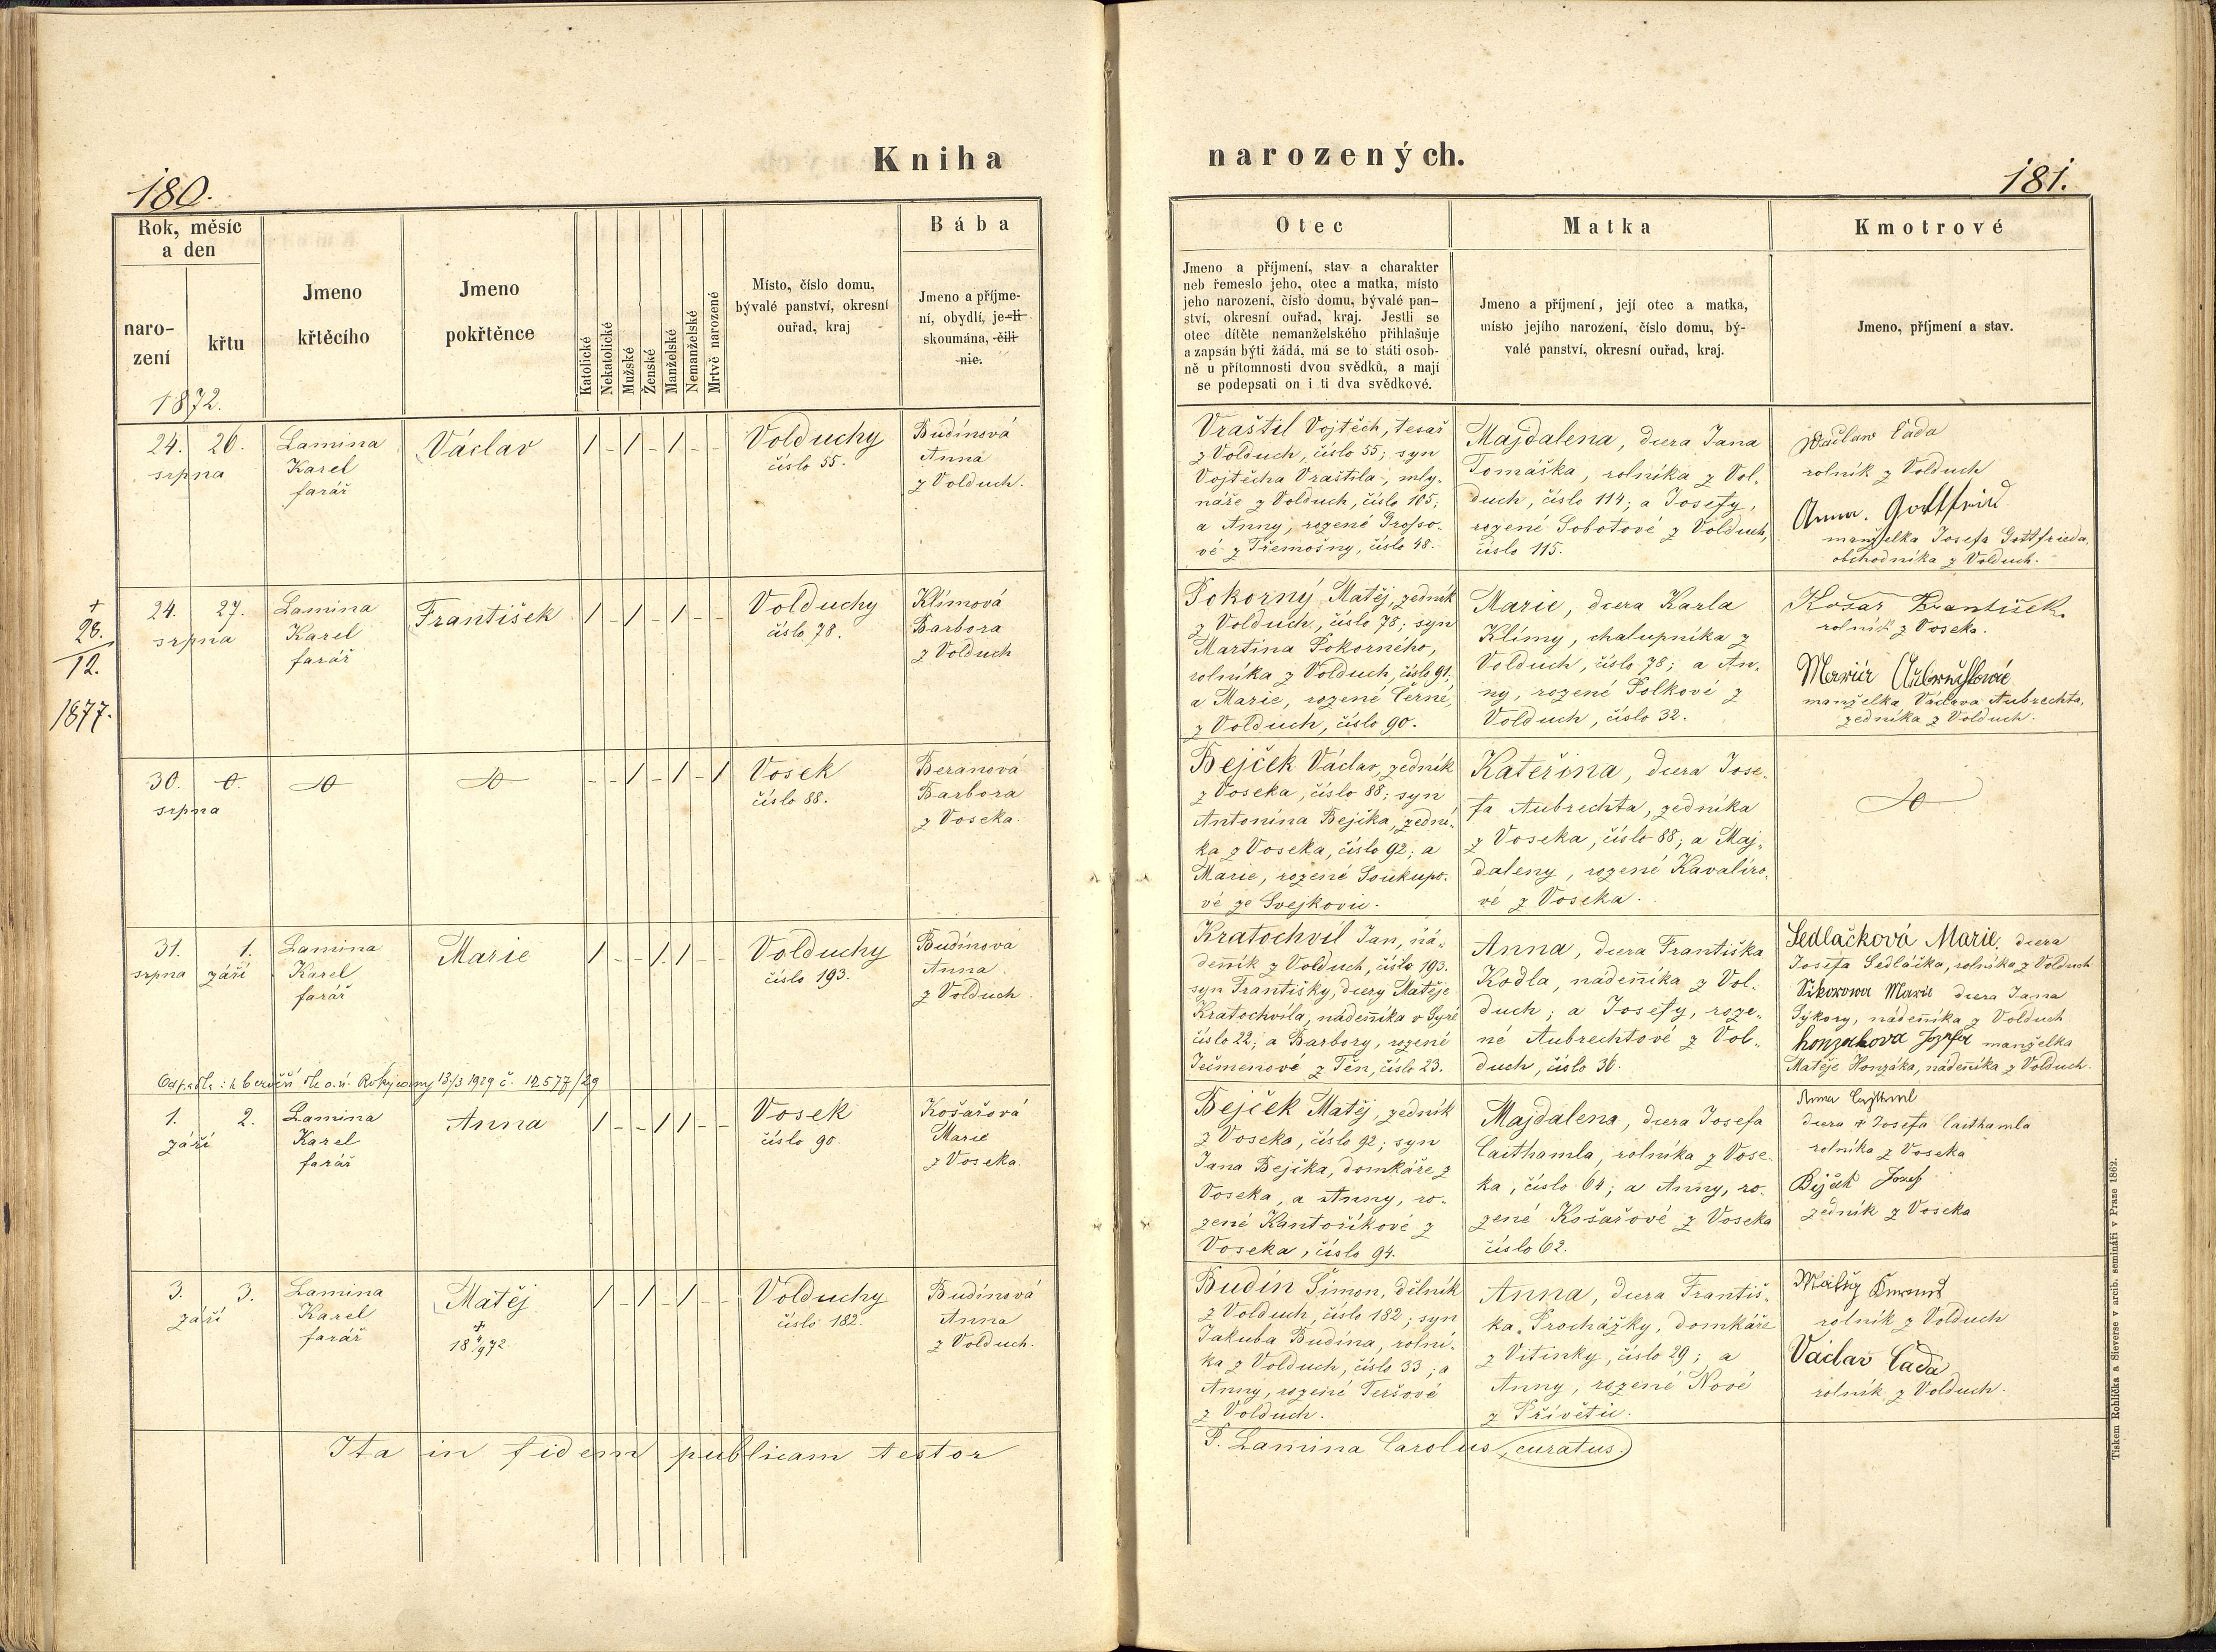 Kniha
narozených.
180.
181.
Rok, měsíc
a den
naro-
zení
křtu
1872.
Jmeno
křtěcího
Jmeno
pokřtěnce
Katolické
Nekatolické
Mužské
Ženské
Manželské
Nemanželské
Mrtvě narozené
Místo, číslo domu,
bývalé panství, okresní
ouřad, kraj
Bába
Jmeno a příjme-
ní, obydlí, je-li
skoumána, čili
nic.
Otec
Jmeno a příjmení, stav a charakter
neb řemeslo jeho, otec a matka, místo
jeho narození, číslo domu, bývalé pan-
ství, okresní ouřad, kraj. Jestli se
otec dítěte nemanželského přihlašuje
a zapsán býti žádá, má se to státi osob-
ně u přítomnosti dvou svědků, a mají
se podepsati on i ti dva svědkové.
Matka
Jmeno a příjmení, její otec a matka,
místo jejího narození, číslo domu, bý-
valé panství, okresní ouřad, kraj.
Kmotrové
Jmeno, příjmení a stav.
24. 26.
srpna
Lamina
Karel
farář
Václav
/ - / - / - -
Volduchy
číslo 55.
Budínová
Anna
z Volduch.
Vraštil Vojtěch, tesař
z Volduch, číslo 55; syn
Vojtěcha Vraštila, mly-
náře z Volduch, číslo 105;
a Anny, rozené Grosso-
vé z Třemošny, číslo 48.
Majdalena, dcera Jana
Tomáška, rolníka z Vol-
duch, číslo 114; a Josefy,
rozené Sobotové z Volduch,
číslo 115.
Waclaw Cada
rolník z Volduch
Anna. Gottfried
manželka Josefa Gottfrieda,
obchodníka z Volduch.
+
28.
12.
1877.
24. 27.
srpna
Lamina
Karel
farář
František
/ - / - / - -
Volduchy
číslo 78.
Klímová
Barbora
z Volduch
Pokorný Matěj, zedník
z Volduch, číslo 78; syn
Martina Pokorného,
rolníka z Volduch, číslo 91.
a Marie, rozené Černé,
z Volduch, číslo 90.
Marie, dcera Karla
Klímy, chalupníka z
Volduch, číslo 78; a An-
ny, rozené Polkové z
Volduch, číslo 32.
Košař František
rolník z Voseka.
manželka Václava Aubrechta,
zedníka z Volduch.
30. 0.
srpna
- - / - / - /
Vosek
číslo 88.
Beranová
Barbora
z Voseka.
Bejček Václav, zedník
z Voseka, číslo 88; syn
Antonína Bejčka, zední-
ka z Voseka, číslo 92; a
Marie, rozené Soukupo-
vé ze Svejkovic.
Kateřina, dcera Jose-
fa Aubrechta, zedníka
z Voseka, číslo 88; a Maj-
daleny, rozené Kavalíro-
vé z Voseka.
31. 1.
srpna září
Lamina
Karel
farář
Marie
/ - - / / - -
Volduchy
číslo 193.
Budínová
Anna
z Volduch.
Kratochvíl Jan, ná-
denník z Volduch, číslo 193.
syn Františky, dcery Matěje
Kratochvíla, nádenníka v Syré
číslo 22; a Barbory, rozené
Ječmenové z Těn, číslo 23.
Anna, dcera Františka
Kodla, nádenníka z Vol-
duch; a Josefy, roze-
né Aubrechtové z Vol-
duch, číslo 36.
Sedláčková Marie, dcera
Josefa Sedláčka, rolníka z Volduch
Sikorowa Marie dcera Jana
Sýkory, nádenníka z Volduch
honzakova Jozefa manželka
Matěje Honzáka, nádenníka z Volduch.
Odpadla: k bezvěří dle o.ú. Rokycany 13/3 1929 č. 12.577/29
1. 2.
září
Lamina
Karel
farář
Anna
/ - - / / - -
Vosek
číslo 90.
Košařová
Marie
z Voseka.
Bejček Matěj, zedník
z Voseka, číslo 92; syn
Jana Bejčka, domkáře z
Voseka, a Anny, ro-
zené Kantoříkové z
Voseka, číslo 94.
Majdalena, dcera Josefa
Caithamla, rolníka z Vose-
ka, číslo 64; a Anny, ro-
zené Košařové z Voseka
číslo 62.
Anna Cajthaml
dcera + Josefa Caithamla
rolníka z Voseka
Bejček Josef
zedník z Voseka
3. 3.
září
Lamina
Karel
farář
Matěj
+
18 4/9 72
/ - / - / - -
Volduchy
číslo 182.
Budínová
Anna
z Volduch.
Budín Šimon, dělník
z Volduch, číslo 182; syn
Jakuba Budína, rolní-
ka z Volduch, číslo 33; a
Anny, rozené Teršové
z Volduch.
Anna, dcera Františ-
ka Procházky, domkáře
z Vitinky, číslo 29; a
Anny, rozené Nové
z Přívětic.
rolník z Volduch
Václav Cada
rolník z Volduch.
Ita in fidem publicam testor
P. Lamina Carolus, curatus.
Tiskem Rohlíčka a Sieverse v arcib. semináři v Praze 1862.